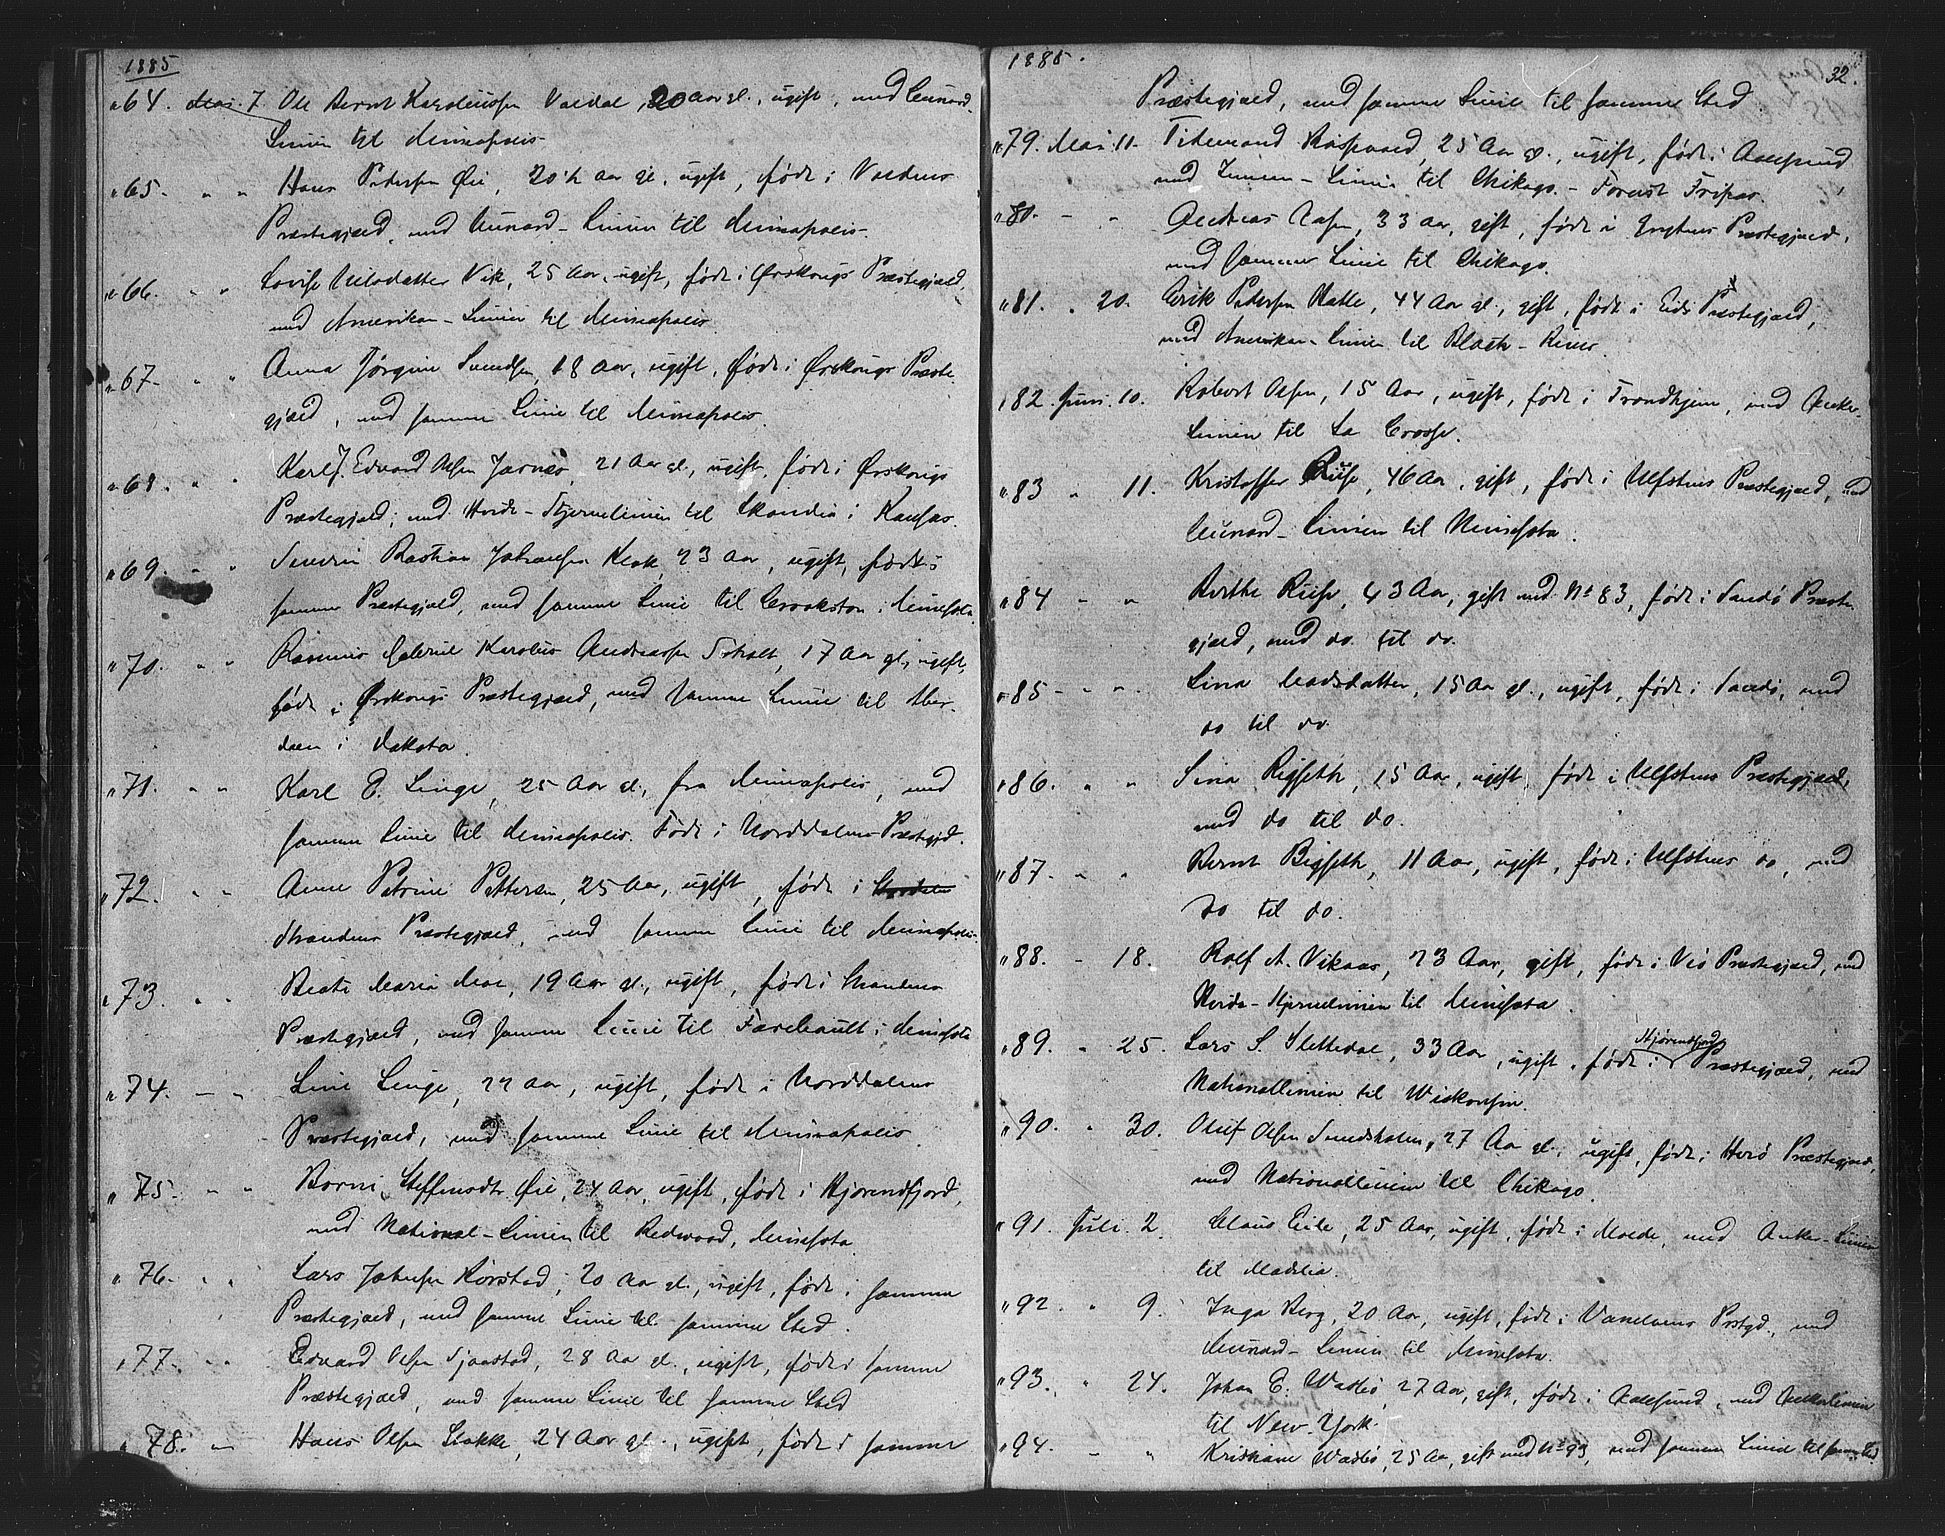 1885
" 64. Mai. 7 Ole Bernt Karolussen Valdal, 20 Aar gl., ugift, med Cunard-
Linien til Minneapolis.
" 65. " " Hans Pedersen Øie, 20½ Aar gl., ugift, født i Voldens
Præstegjæld, med Cunard-Linien til Minneapolis.
" 66. " " Lovise Nilsdatter Vik, 25 Aar, ugift, født i Ørskougs Præstegjæld,
med Amerikan-Linien til Minneapolis.
" 67. " " Anna Jørgine Svendsen, 18 Aar, ugift, født i Ørskougs Præste-
gjæld, med samme Linie til Minneapolis.
" 68. " " Karl J. Edvard Olsen Jarnes, 21 Aar gl., ugift, født i Ørskougs
Præstegjæld, med Hvide-Stjernelinien til Skandia i Kansas.
" 69. " " Severin Bastian Johansen Klok, 23 Aar, ugift, født i
samme Præstegjæld, med samme Linie til Crookston i Minnesota.
" 70. " " Rasmus Gabriel Karolus Andreassen, 17 Aar gl., ugift,
født i Ørskougs Præstegjæld, med samme Linie til Aber-
deen i Dakota.
" 71. " " Karl E. Linge, 25 Aar gl., fra Minneapolis, med
samme Linie til Minneapolis. Født i Norddalens Præstegjd.
" 72. " " Anne Petrine Pettersen, 25 Aar, ugift, født i
Strandens Præstegjæld, med samme Linie til Minneapolis.
" 73. " " Beate Maria Moe, 19 Aar gl., ugift, født i Strandens
Præstegjæld, med samme Linie til Farebault i Minnesota
" 74. – – Line Linge, 22 Aar, ugift, født i Norddalens
Præstegjæld, med samme Linie til Minneapolis.
" 75. " " Borni Steffensdtr Øie, 24 Aar, ugift, født i Hjørendfjord,
med National-Linien til Redwood, Minnesota.
" 76. " " Lars Johnsen Rørstad, 20 Aar gl., ugift, født i samme
Præstegjæld, med samme Linie til samme Sted.
" 77. " " Edvard Olsen Sjaastad, 28 Aar gl., ugift, født i samme
Præstegjæld, med samme Linie til samme Sted
" 78. " – Hans Olsen Stokke, 24 Aar gl., ugift, født i samme
1885.
32.
Præstegjæld, med samme Linie til samme Sted
" 79. Mai. 11. Tidemand Raspaard, 25 Aar gl., ugift, født i Aalesund,
med Inman-Linie til Chikago.
" 80. – " Andreas Aasen, 33 Aar, gift, født i Præstegjæld,
med samme Linie til Chikago.
" 81. " 20. Erik Pedersen Hatle, 44 Aar gl., gift, født i Eids Præstegjæld,
med Amerikan-Linien til Black-River.
" 82. Juni. 10. Robert Olsen, 15 Aar, ugift, født i Trondhjem, med Anker-
Linien til La Crosse.
" 83 " 11. Kristoffer Riise, 46 Aar, gift, født i Ulfstens Præstegjæld, med
Cunard-Linien til Minnesota.
" 84 – " Berthe Riise, 43 Aar, gift med No 83, født i Sandø Præste-
gjæld, med do. til do.
" 85 – " " Lina Madsdatter, 15 Aar gl., ugift, født i Sandø, med
do til do.
" 86. " " Sina Rigseth, 15 Aar, ugift, født i Ulfstens Præstegjæld,
med do til do.
" 87. " " Bernt Bigseth, 11 Aar, ugift, født i Ulfstens do, med
do til do.
" 88. – 18. Rolf A. Vikaas, 23 Aar, gift, født i Viø Præstegjæld, med
Hvide-Stjernelinien til Minnesota.
" 89. " 25. Lars S. Slettedal, 33 Aar, ugift, født i Hjørendfjord Præstegjæld, med
Nationallinien til Wiskonsin.
" 90. " 30. Oluf Olsen Smedsholm, 27 Aar gl., ugift, født i Herø Præstegjæld,
med Nationallinien til Chikago.
" 91. Juli. 2. Claus Eide, 25 Aar, ugift, født i Molde, med Anker-Linien
til Madelia.
" 92. " 9. Inga Berg, 20 Aar, ugift, født i Vanelvens Prstgd., med
Cunard-Linien til Minnesota.
" 93. " 24. Johan E. Watsø, 27 Aar, gift, født i Aalesund, med Ankerlinien
til New-York.
" 94. – " Kristiane Watsø, 25 Aar, gift med No 93, med samme Linie til samme Sted.